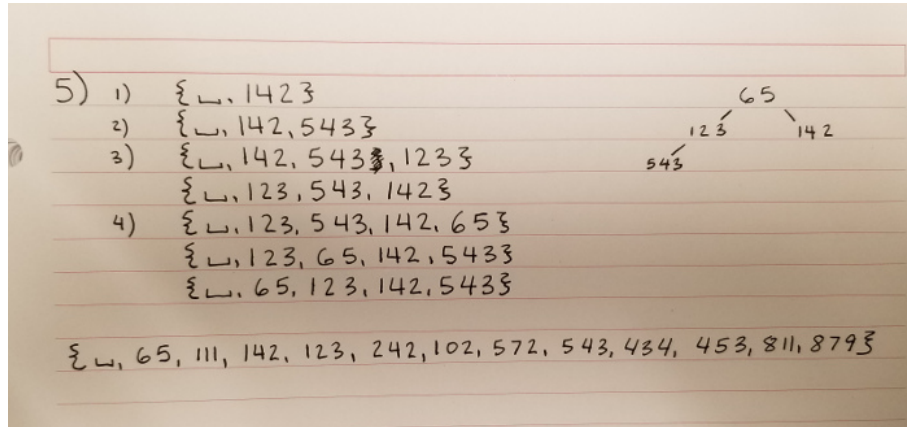 5) 1) {␣, 142}
2) {␣, 142, 543}
3) {␣, 142, 543, 123}
{␣, 123, 543, 142}
4) {␣, 123, 543, 142, 65}
{␣, 123, 65, 142, 543}
{␣, 65, 123, 142, 543}
65
123 142
543
{␣, 65, 111, 142, 123, 242, 102, 572, 543, 434, 453, 811, 879}